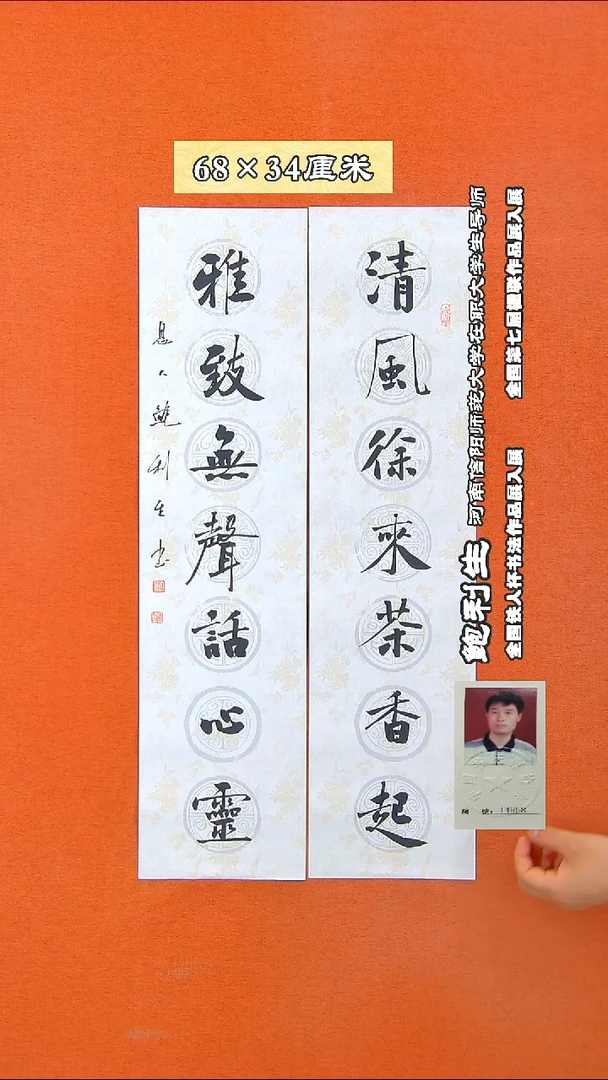 68×34厘米
清風徐來茶香起
雅致無聲話心靈
息人鮑利生书
鲍利生 河南信阳师范大学在职大学生导师
全国第七届楹联作品展入展
全国铁人杯书法作品展入展